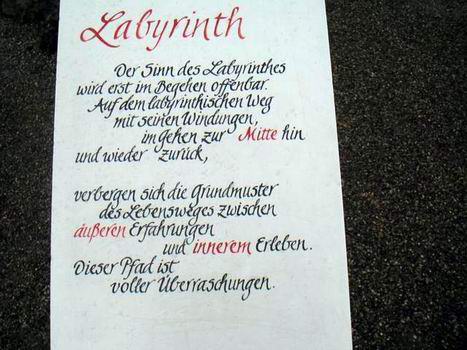 Labyrinth
Der Sinn des Labyrinthes
wird erst im Begehen offenbar.
Auf dem labyrinthischen Weg
mit seinen Windungen,
im Gehen zur Mitte hin
und wieder zurück,
verbergen sich die Grundmuster
des Lebensweges zwischen
äußeren Erfahrungen
und innerem Erleben.
Dieser Pfad ist
voller Überraschungen.